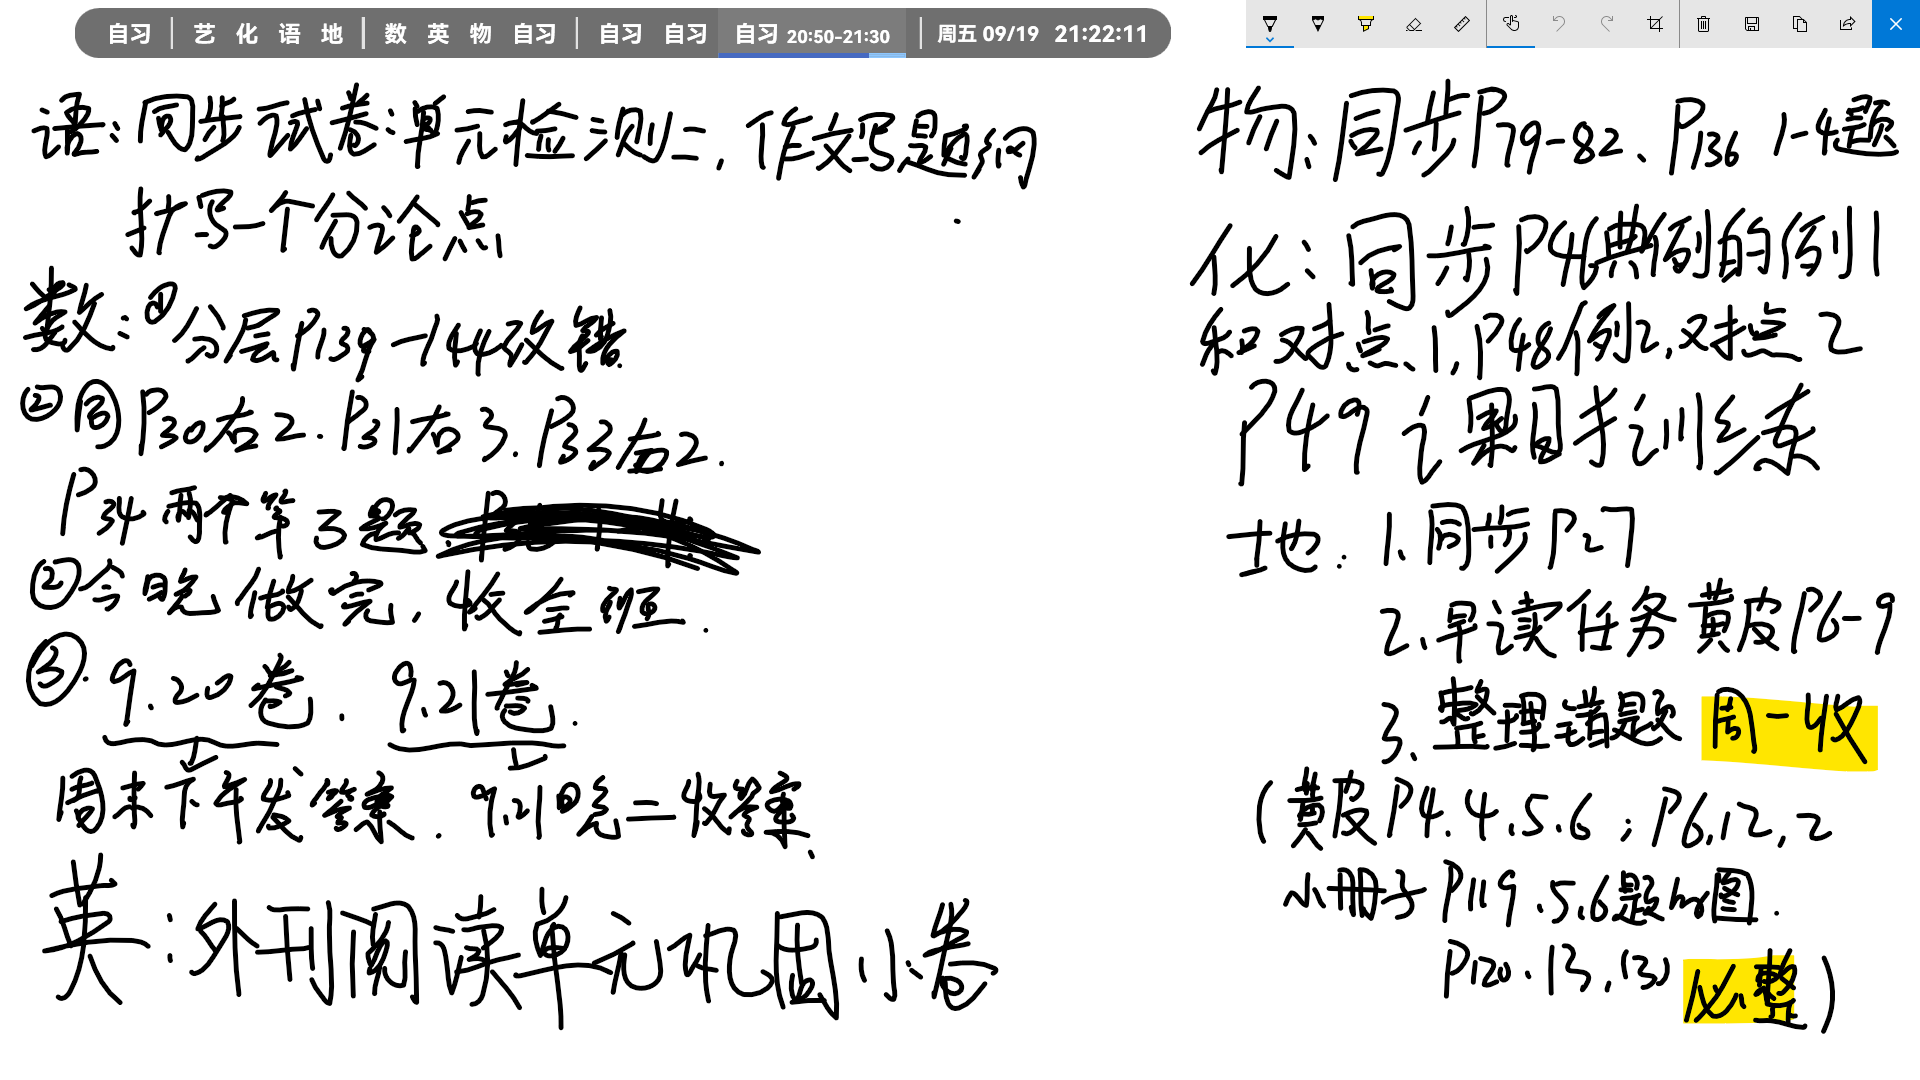 自习 | 艺 化 语 地 | 数 英 物 自习 | 自习 自习 自习 20:50-21:30 | 周五 09/19 21:22:11
语:同步试卷:单元检测二,作文写题纲
抄写一个分论点
数:①分层P139-144改错
②同P30右2.P31右3.P33右2.
P34两个第3题
②今晚做完,收全班.
③.9.20卷.9.21卷.
周末下午发答案.9.21日晚二收答案.
英:外刊阅读单元巩固小卷
物:同步P79-82、P136 1-4题
化:同步P46典例的例1
和对点1,P48例2,对点2
P49课目标训练
地:1、同步P27
2、早读任务黄皮P6-9
3、整理错题 周一收
(黄皮P4.4,5.6;P6,12,2
小册子P119.5,6题 图.
P120.13,(3) 必整)